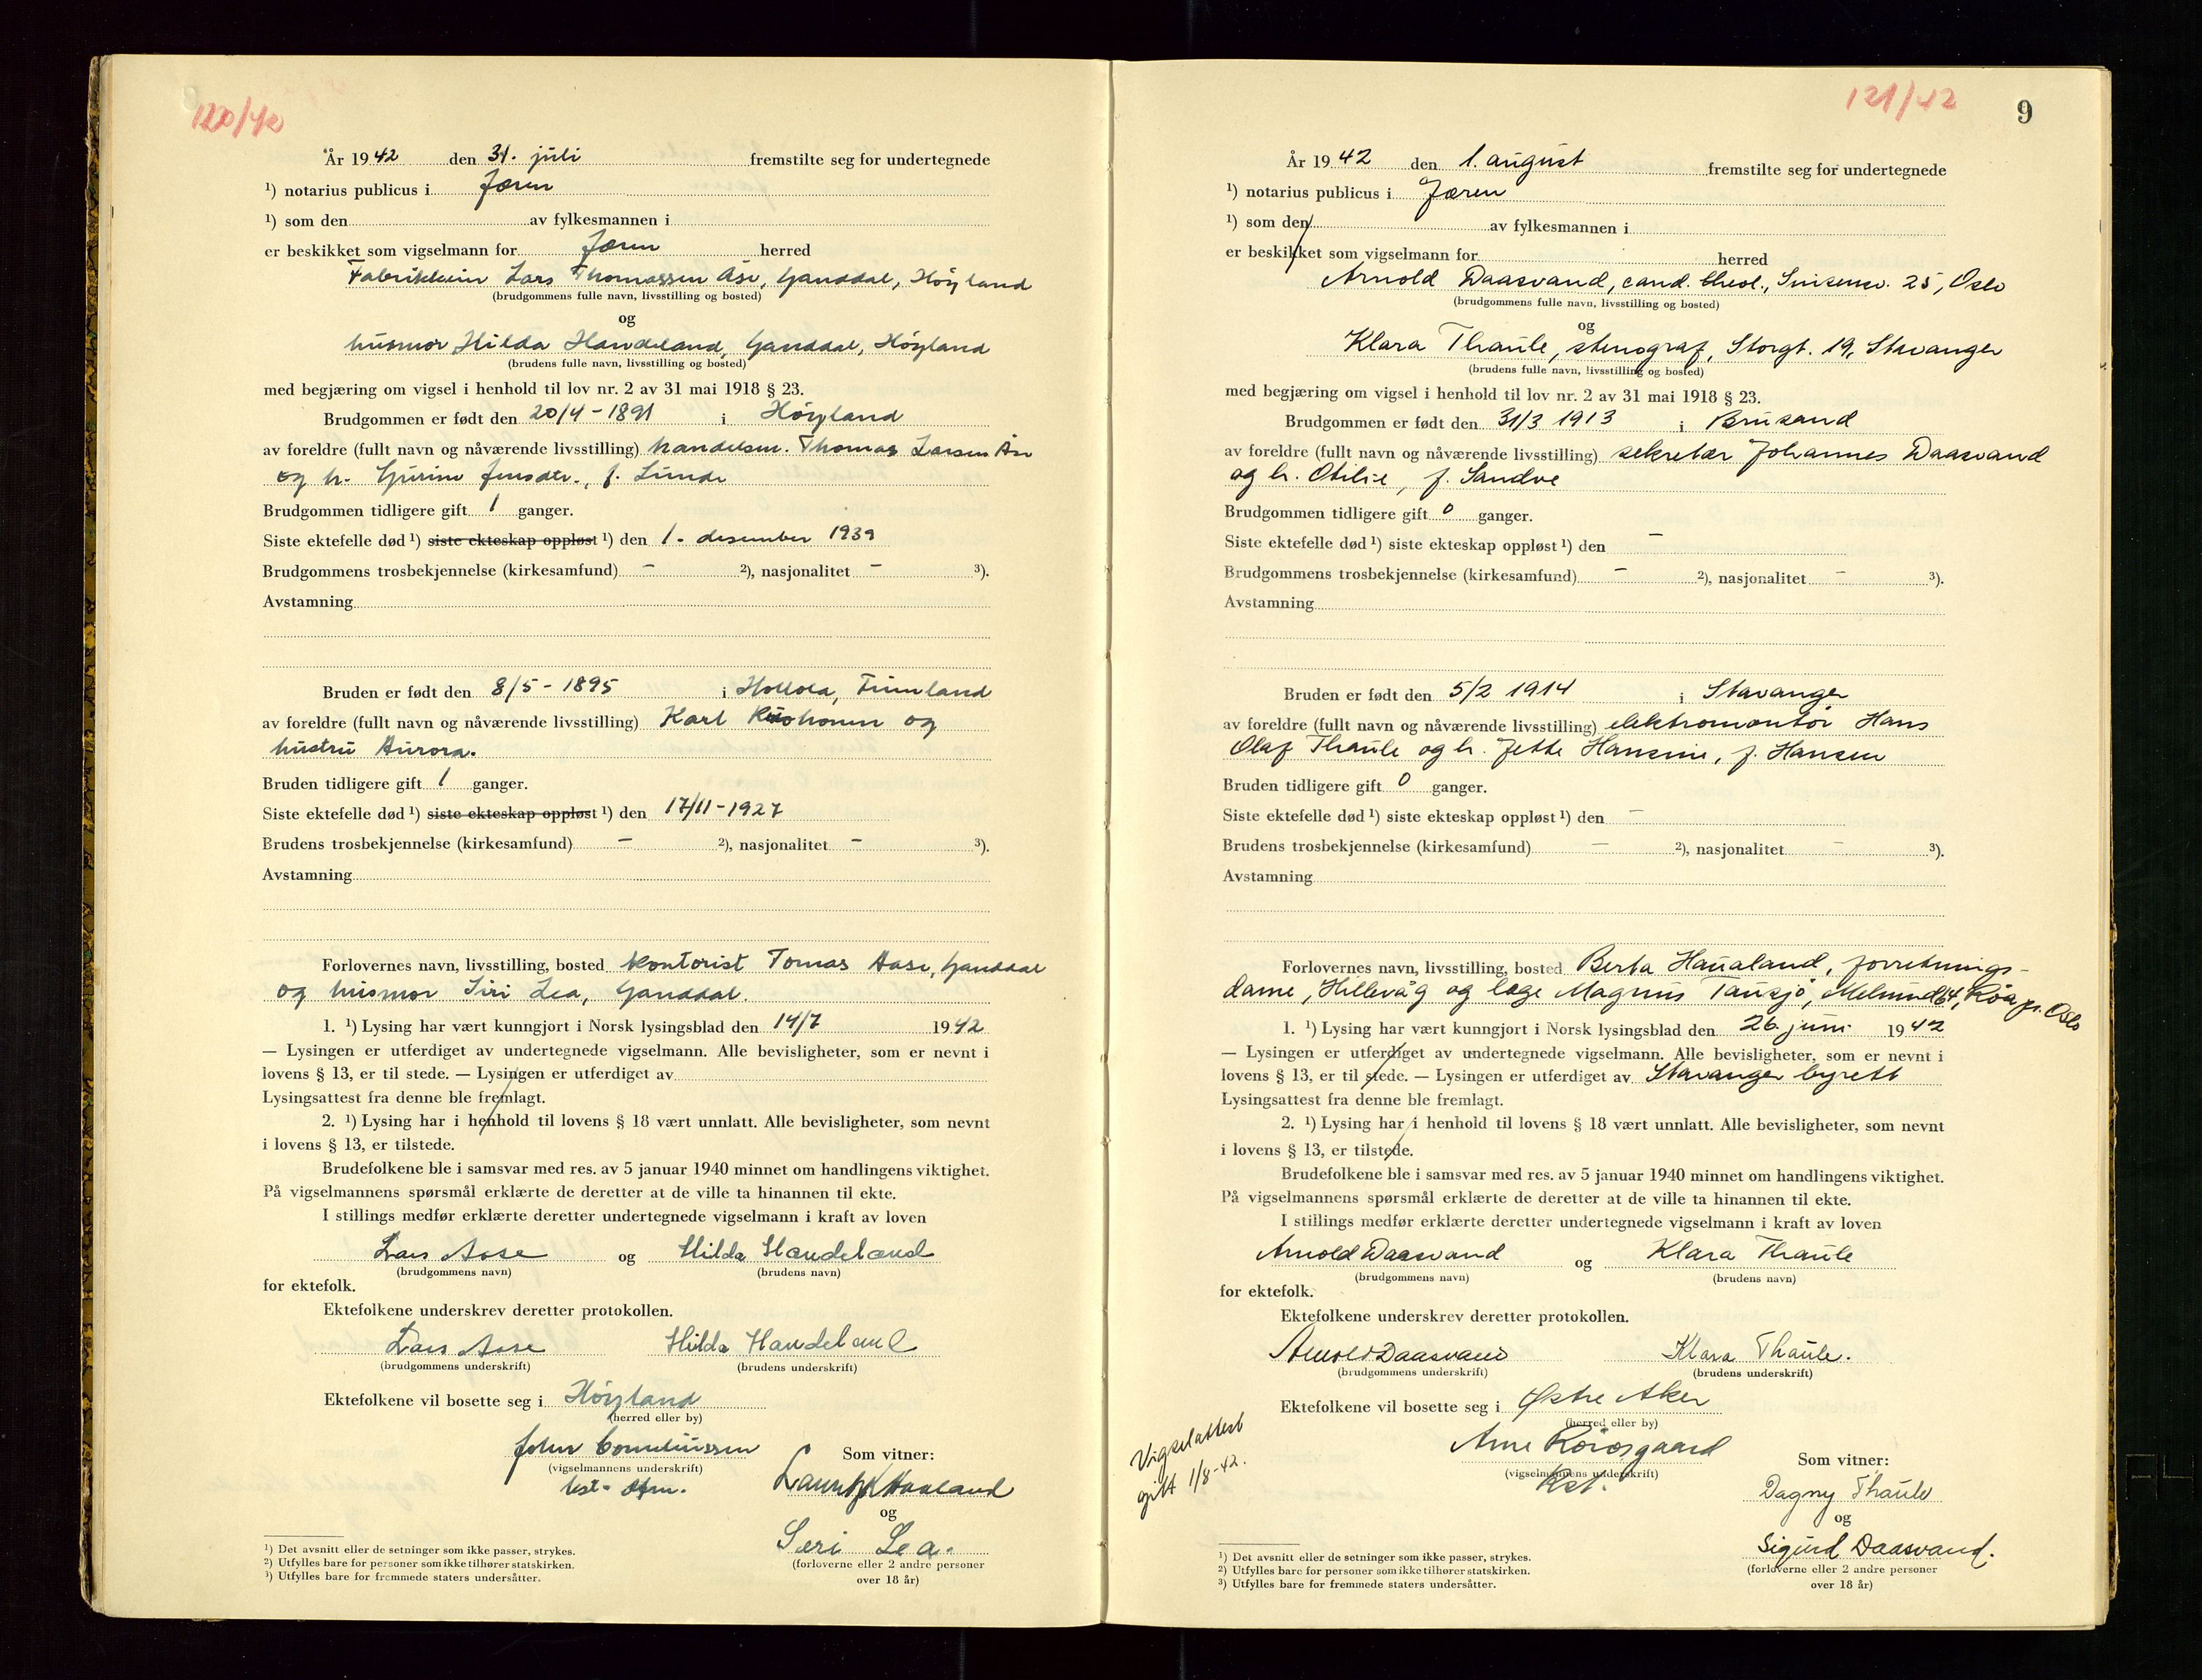 120/42
År 1942 den 31. juli fremstilte seg for undertegnede
¹) notarius publicus i Jæren
¹) som den av fylkesmannen i
er beskikket som vigselmann for Jæren herred
Lars Thomassen Åse, Ganddal, Höyland
(brudgommens fulle navn, livsstilling og bosted)
og
husmor Hilda Handeland, Ganddal, Höyland
(brudens fulle navn, livsstilling og bosted)
med begjæring om vigsel i henhold til lov nr. 2 av 31 mai 1918 § 23.
Brudgommen er født den 20/4 - 1891 i Höyland
av foreldre (fullt navn og nåværende livsstilling) handelsm. Thomas Larsen Åse
og h. Gurine Jensdtr., f. Lunde
Brudgommen tidligere gift 1 ganger.
Siste ektefelle død ¹) siste ekteskap oppløst ¹) den 1. desember 1939
Brudgommens trosbekjennelse (kirkesamfund) - ²), nasjonalitet - ³).
Avstamning
Bruden er født den 8/5 - 1895 i Hollola, Finnland
av foreldre (fullt navn og nåværende livsstilling) Karl og
hustru Aurora.
Bruden tidligere gift 1 ganger.
Siste ektefelle død ¹) siste ekteskap oppløst ¹) den 17/11 - 1927
Brudens trosbekjennelse (kirkesamfund) - ²), nasjonalitet - ³).
Avstamning
Forlovernes navn, livsstilling, bosted kontorist Tomas Aase, Ganddal
og husmor Siri Lea, Ganddal.
1. ¹) Lysing har vært kunngjort i Norsk lysingsblad den 14/7 1942
— Lysingen er utferdiget av undertegnede vigselmann. Alle bevisligheter, som er nevnt i
lovens § 13, er til stede. — Lysingen er utferdiget av
Lysingsattest fra denne ble fremlagt.
2. ¹) Lysing har i henhold til lovens § 18 vært unnlatt. Alle bevisligheter, som nevnt
i lovens § 13, er tilstede.
Brudefolkene ble i samsvar med res. av 5 januar 1940 minnet om handlingens viktighet.
På vigselmannens spørsmål erklærte de deretter at de ville ta hinannen til ekte.
I stillings medfør erklærte deretter undertegnede vigselmann i kraft av loven
Lars Aase og Hilda Handeland
(brudgommens navn) (brudens navn)
for ektefolk.
Ektefolkene underskrev deretter protokollen.
Lars Aase Hilda Handeland
(brudgommens underskrift) (brudens underskrift)
Ektefolkene vil bosette seg i Höyland
(herred eller by)
John Corneliussen Som vitner:
(vigselmannens underskrift)
Haaland
og
Seri Lea.
(forloverne eller 2 andre personer
over 18 år)
¹) Det avsnitt eller de setninger som ikke passer, strykes.
²) Utfylles bare for personer som ikke tilhører statskirken.
³) Utfylles bare for fremmede staters undersåtter.
121/42
9
År 1942 den 1. august fremstilte seg for undertegnede
¹) notarius publicus i Jæren
¹) som den av fylkesmannen i
er beskikket som vigselmann for herred
Arnold Daasvand, cand. theol., Sinsenv. 25, Oslo
(brudgommens fulle navn, livsstilling og bosted)
og
Klara Thaule, stenograf, Storgt. 19, Stavanger
(brudens fulle navn, livsstilling og bosted)
med begjæring om vigsel i henhold til lov nr. 2 av 31 mai 1918 § 23.
Brudgommen er født den 31/3 1913 i Brusand
av foreldre (fullt navn og nåværende livsstilling) sekretær Johannes Daasvand
og h. Otilie, f. Sandve
Brudgommen tidligere gift 0 ganger.
Siste ektefelle død ¹) siste ekteskap oppløst ¹) den -
Brudgommens trosbekjennelse (kirkesamfund) - ²), nasjonalitet - ³).
Avstamning
Bruden er født den 5/2 1914 i Stavanger
av foreldre (fullt navn og nåværende livsstilling) elektromontör Hans
Olaf Thaule og h. Jette Hansine, f. Hansen
Bruden tidligere gift 0 ganger.
Siste ektefelle død ¹) siste ekteskap oppløst ¹) den -
Brudens trosbekjennelse (kirkesamfund) - ²), nasjonalitet - ³).
Avstamning
Forlovernes navn, livsstilling, bosted Berta Haualand, forretnings-
dame, Hillevåg og læge Magnus Tausjö, Røa pr. Oslo
1. ¹) Lysing har vært kunngjort i Norsk lysingsblad den 26. juni 1942
— Lysingen er utferdiget av undertegnede vigselmann. Alle bevisligheter, som er nevnt i
lovens § 13, er til stede. — Lysingen er utferdiget av Stavanger byrett
Lysingsattest fra denne ble fremlagt.
2. ¹) Lysing har i henhold til lovens § 18 vært unnlatt. Alle bevisligheter, som nevnt
i lovens § 13, er tilstede.
Brudefolkene ble i samsvar med res. av 5 januar 1940 minnet om handlingens viktighet.
På vigselmannens spørsmål erklærte de deretter at de ville ta hinannen til ekte.
I stillings medfør erklærte deretter undertegnede vigselmann i kraft av loven
Arnold Daasvand og Klara Thaule
(brudgommens navn) (brudens navn)
for ektefolk.
Ektefolkene underskrev deretter protokollen.
Arnold Daasvand Klara Thaule.
(brudgommens underskrift) (brudens underskrift)
Ektefolkene vil bosette seg i Østre Aker
(herred eller by)
Vigselattest
gitt 1/8-42.
Arne Som vitner:
(vigselmannens underskrift)
Dagny Thaule
og
Sigurd Daasvand.
(forloverne eller 2 andre personer
over 18 år)
¹) Det avsnitt eller de setninger som ikke passer, strykes.
²) Utfylles bare for personer som ikke tilhører statskirken.
³) Utfylles bare for fremmede staters undersåtter.